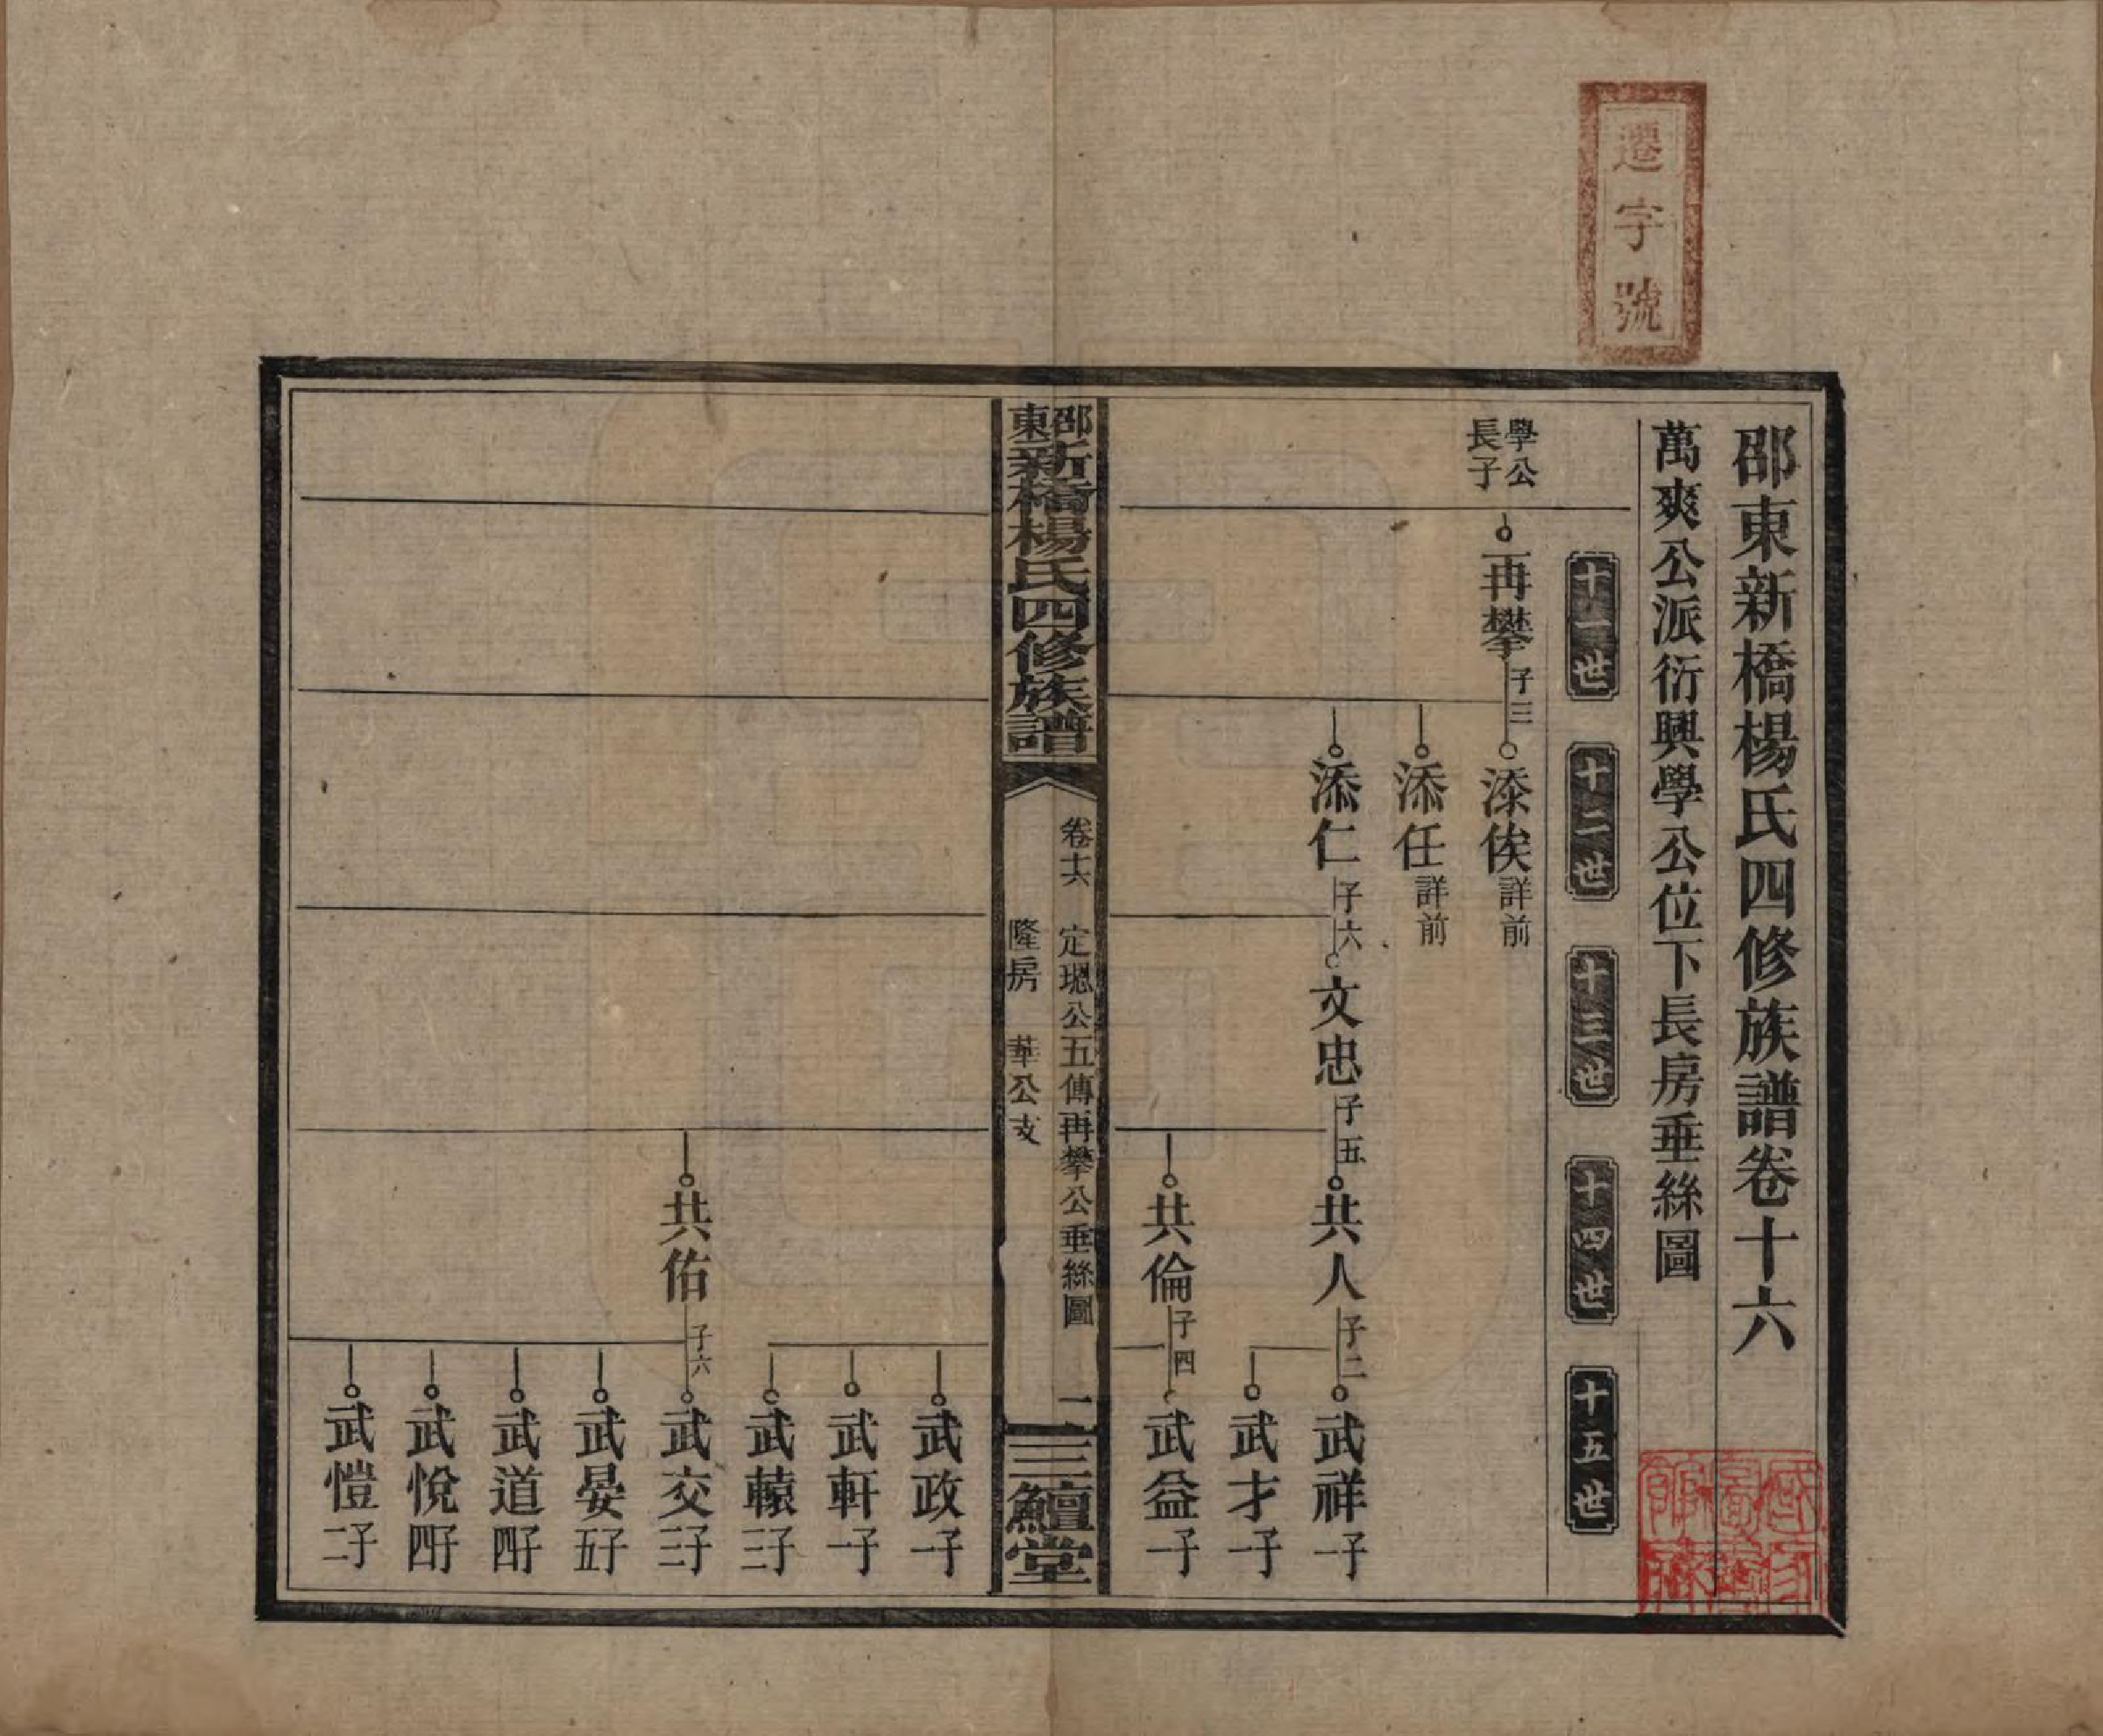 遷字號
邵東新橋楊氏四修族譜卷十六
萬爽公派衍興學公位下長房垂絲圖
十一世
十二世
十三世
十四世
十五世
學公長子
再攀 子三
添俟 詳前
添任 詳前
添仁 子六
文忠 子五
共人 子二
武祥 一子
武才 一子
共倫 子四
武益 一子
邵東新橋楊氏四修族譜
卷十六 定璁公五傳再攀公垂絲圖
隆房 華公支
一
三鱣堂
武政 一子
武軒 一子
武轅 三子
共佑 子六
武交 三子
武晏 五子
武道 四子
武悅 四子
武愷 二子